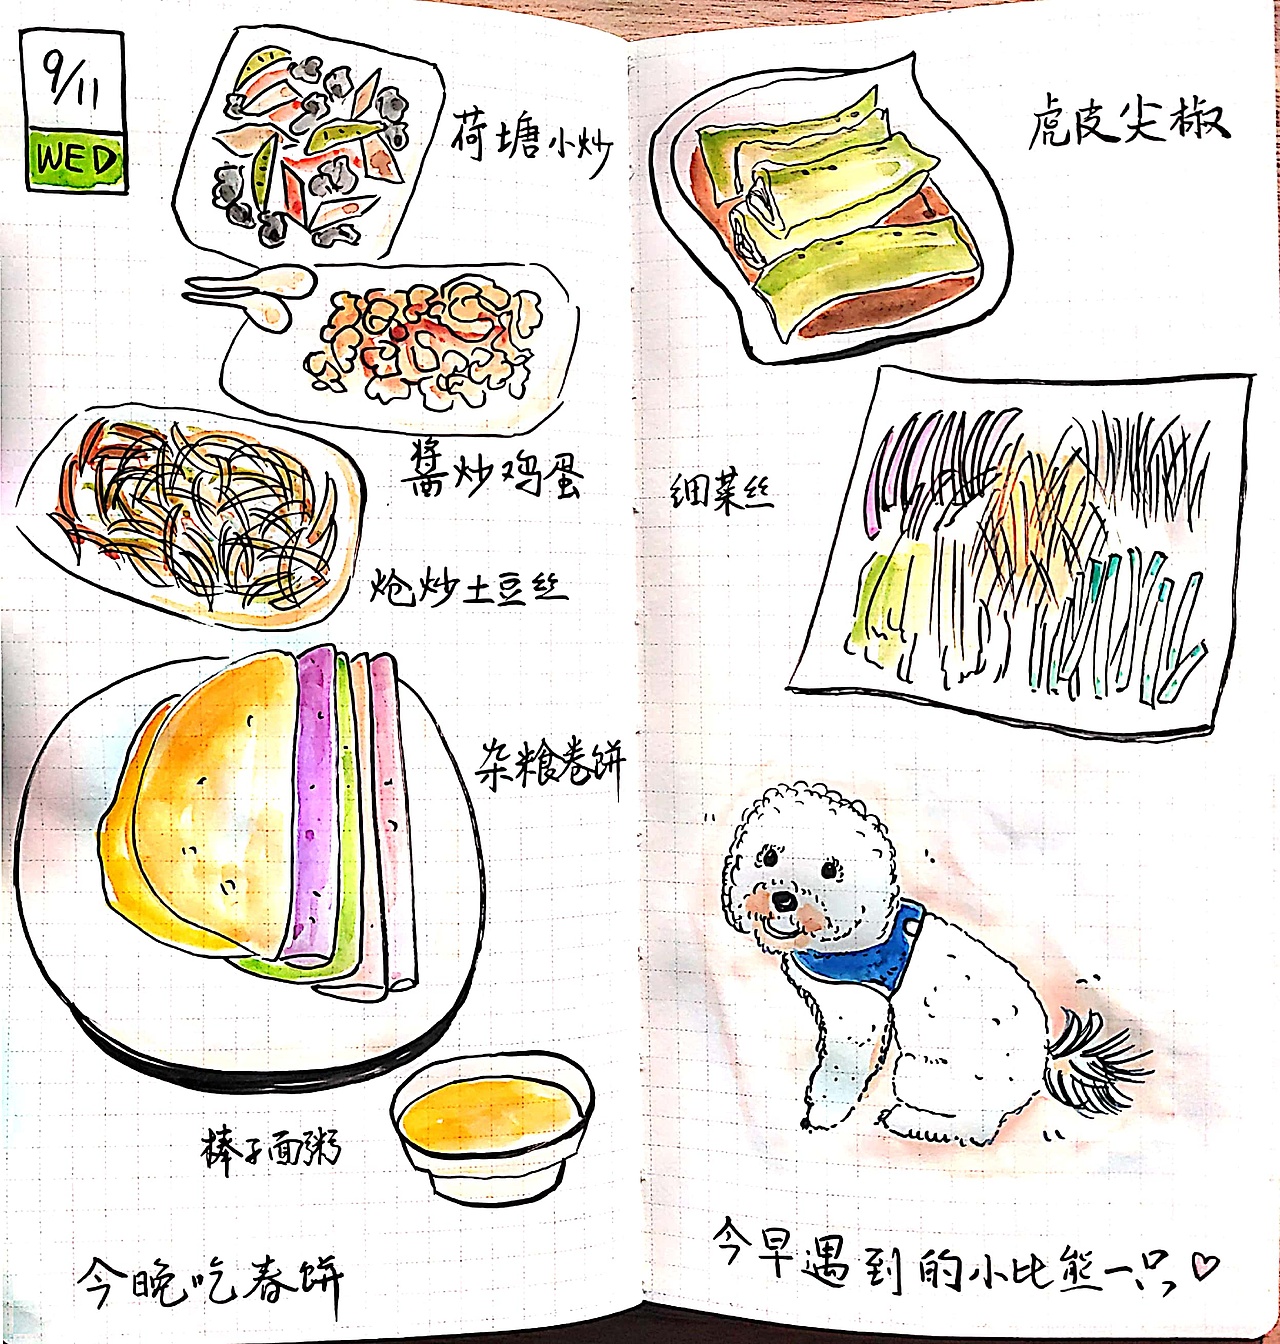 9/11
WED
荷塘小炒
酱炒鸡蛋
炝炒土豆丝
杂粮卷饼
棒子面粥
今晚吃春饼
虎皮尖椒
细菜丝
今早遇到的小比熊一只♡